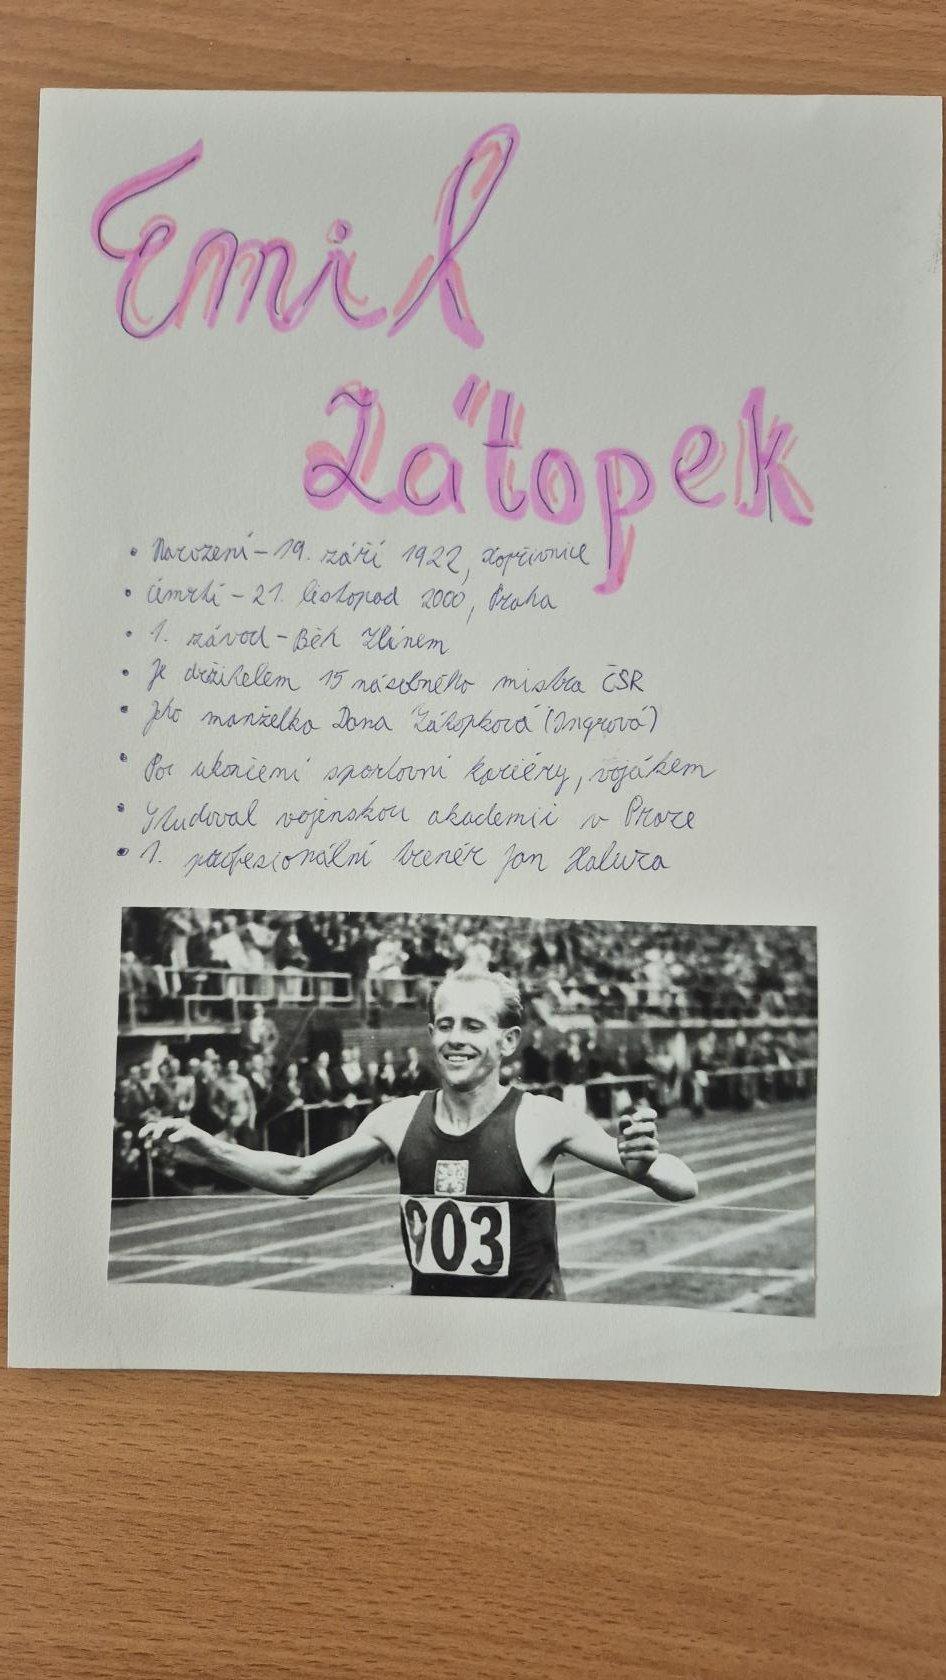 Emil
Zátopek
• Narození - 19. září 1922, Kopřivnice
• Úmrtí - 21. listopad 2000, Praha
• 1. závod - Běh Zlínem
• Je držitelem 15 násobného mistra ČSR
• Jeho manželka Dana Zátopková (Ingrová)
• Po ukončení sportovní kariéry, vojákem
• Studoval vojenskou akademii v Praze
• 1. profesionální trenér Jan Haluza
903